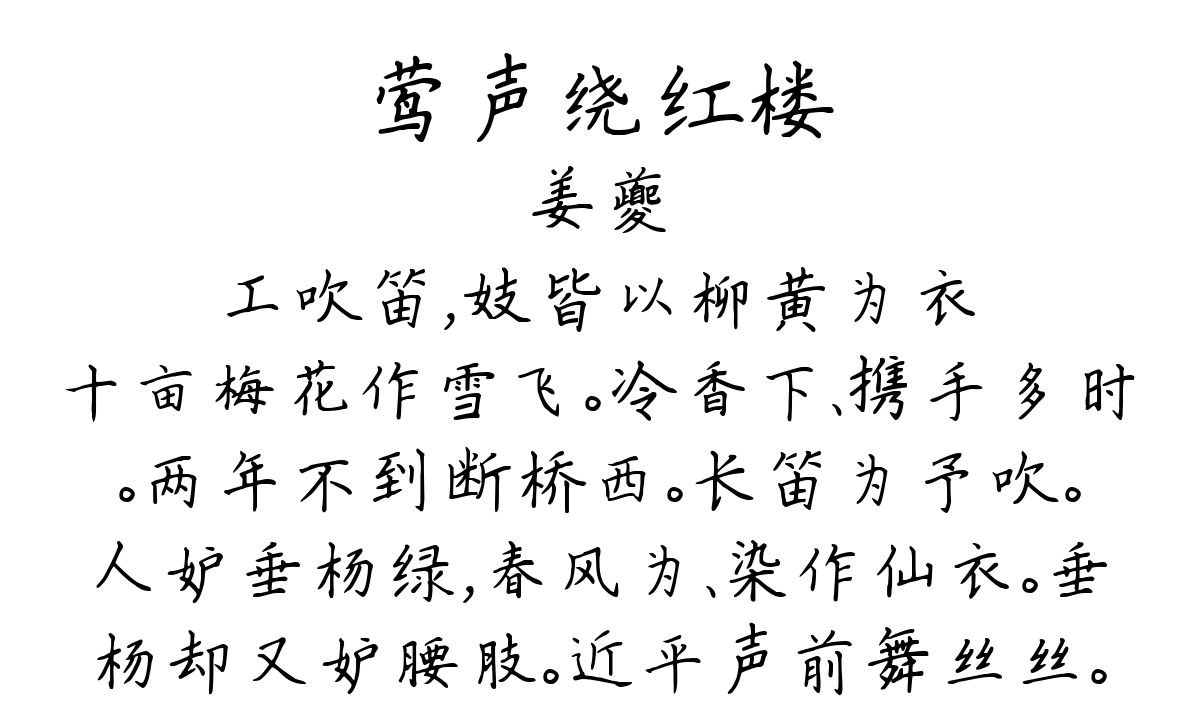 莺声绕红楼
姜夔
工吹笛,妓皆以柳黄为衣
十亩梅花作雪飞。冷香下、携手多时
。两年不到断桥西。长笛为予吹。
人妒垂杨绿,春风为、染作仙衣。垂
杨却又妒腰肢。近平声前舞丝丝。